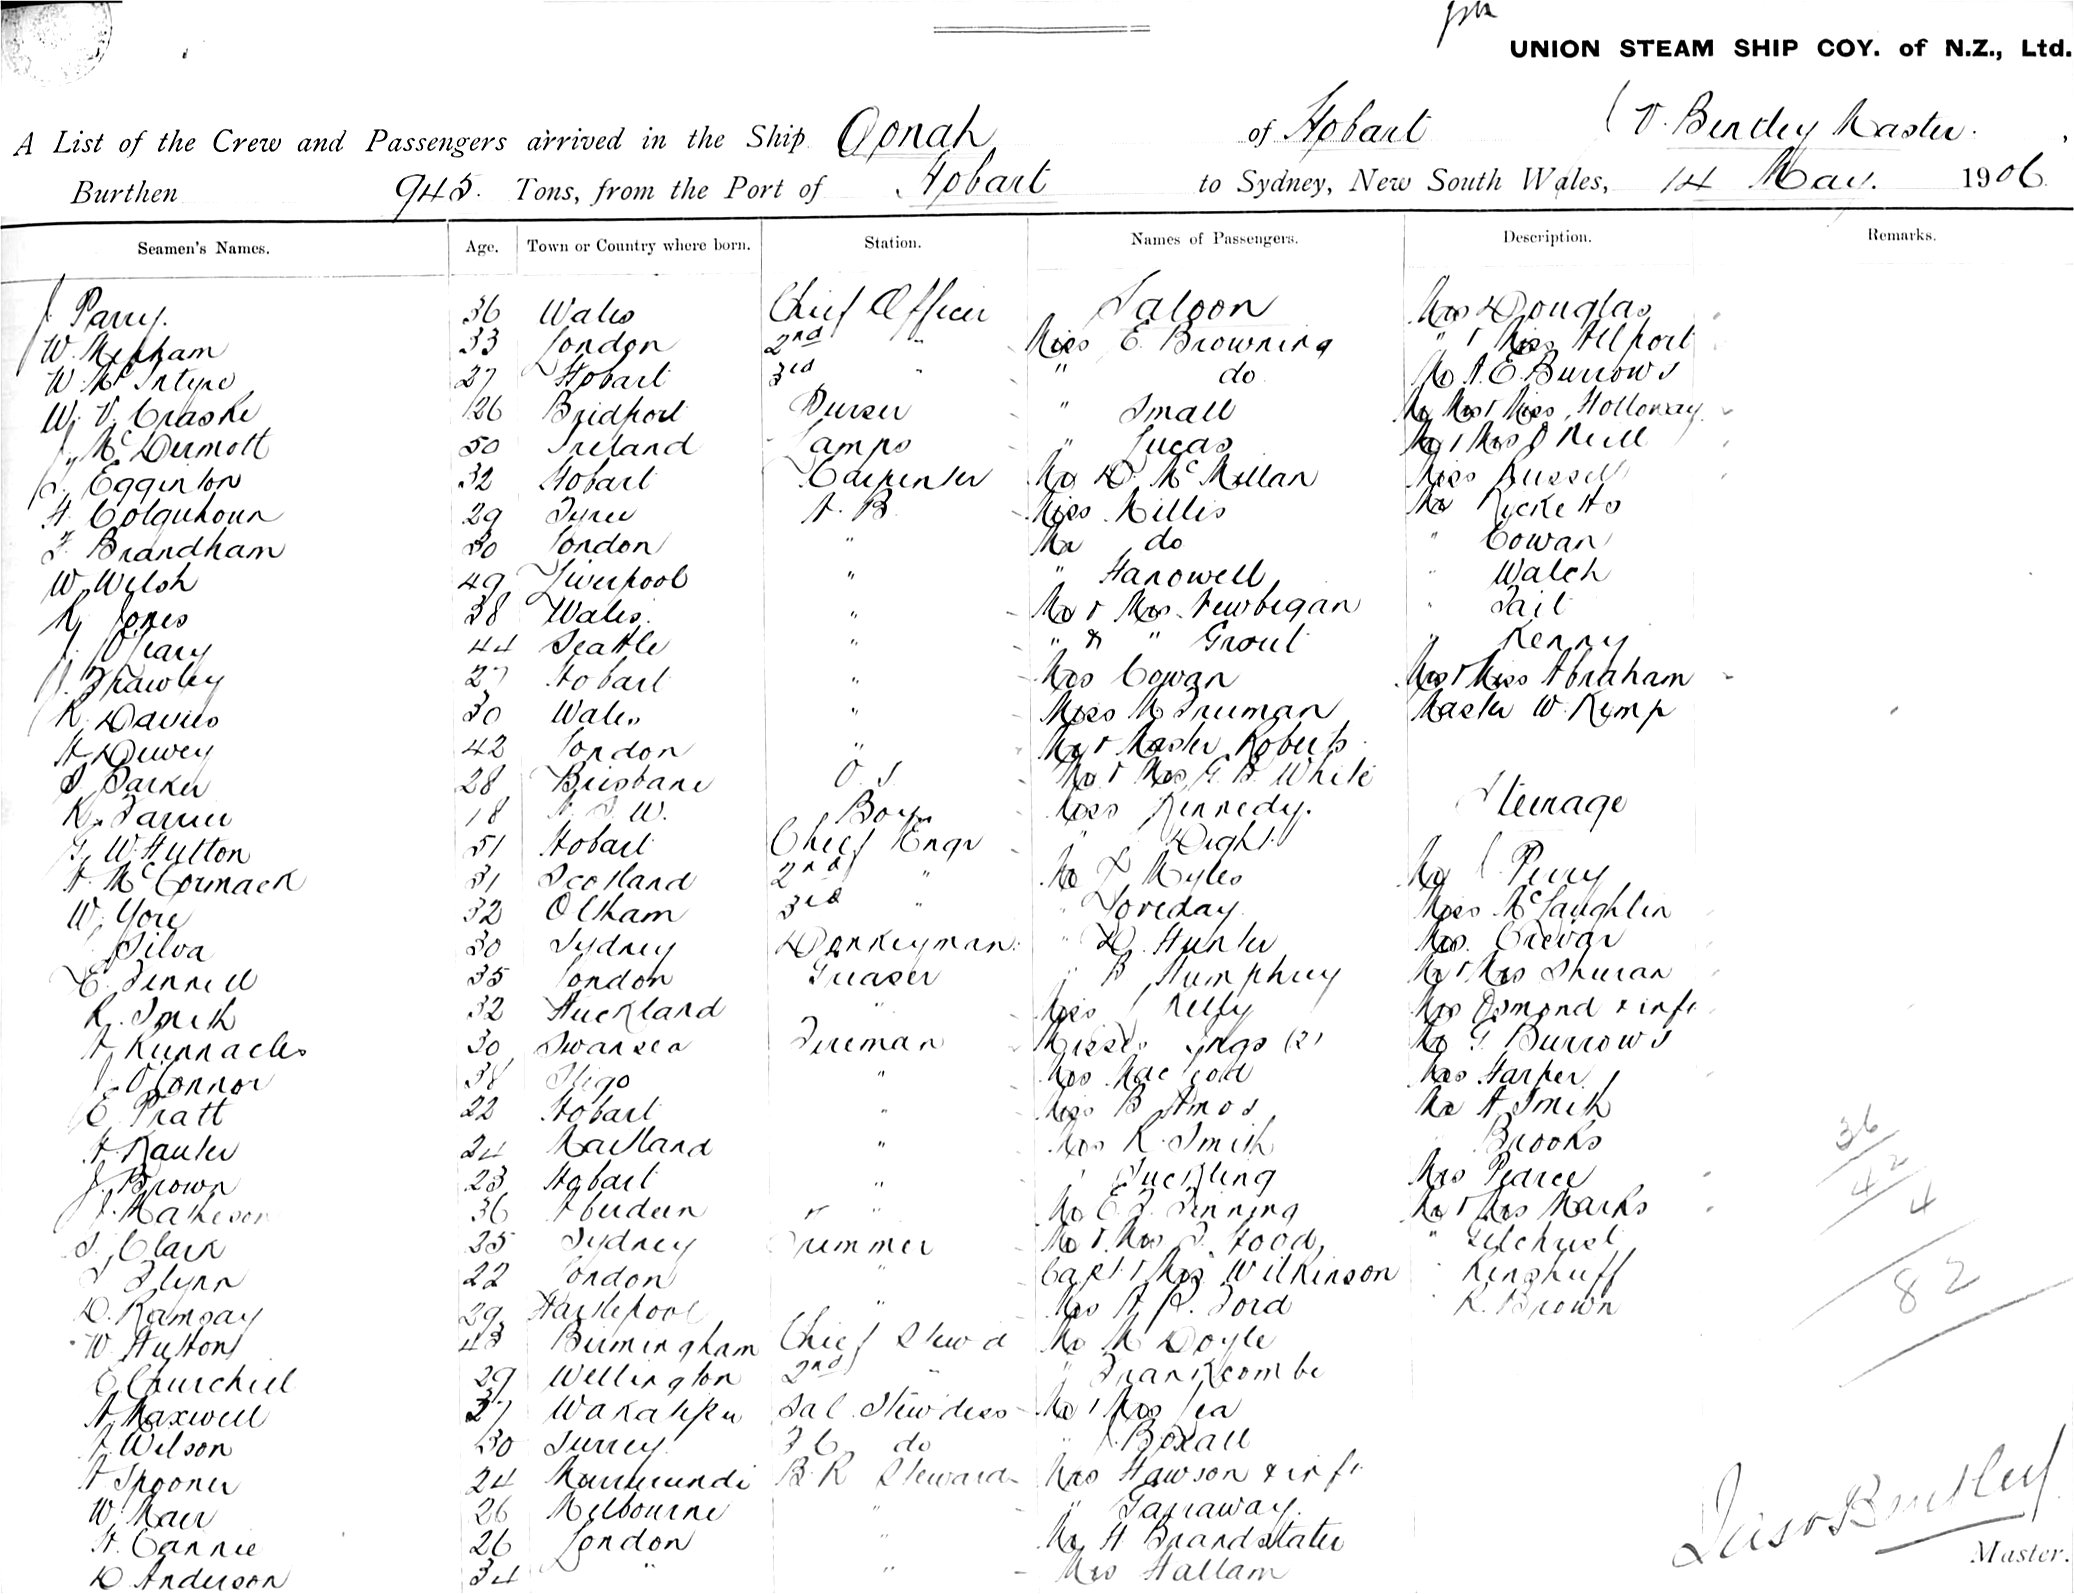 UNION STEAM SHIP COY. of N.Z., Ltd.
A List of the Crew and Passengers arrived in the Ship Oonah of Hobart Master.
Burthen 945. Tons, from the Port of Hobart to Sydney, New South Wales, 14 May. 1906
Seamen's Names. Age. Town or Country where born. Station. Names of Passengers. Description. Remarks.
J Parry. 36 Wales Chief Officer Saloon Mrs Douglas
W. Mepham 33 London 2nd " Miss E. Browning " & Miss Allport
W. McIntyre 27 Hobart 3rd " " do Mr A. E. Burrows
W. V. Craske 26 Bridport Purser " Small Mr Mrs & Miss Holloway
J. McDermott 50 Ireland Lamps " Lucas Mr & Mrs O'Neill
Egginton 32 Hobart Carpenter Mr D. McMillan Miss Russell
A Colquhoun 29 Tyree A. B. Miss Millis Mr Ricketts
F. Brandham 30 London " Mr do " Cowan
W. Welsh 49 Liverpool " " Hanowell " Walch
Jones 38 Wales. " Mr & Mrs Newbegan " Tait
J. O'Leary 44 Seattle " " & " Grout " Kenny
J. Thawley 27 Hobart " Mrs Cowan Mrs & Miss Abraham
R. Davies 30 Wales " Miss M Truman Master W. Kemp
A Dewey 42 London " Mr & Master Roberts
Parker 28 Brisbane O. S. Mr & Mrs G. B. White
R. Farrer 18 N. S. W. Boy Miss Kennedy. Steerage
G. W. Hutton 51 Hobart Chief Engr " Dight
A. McCormack 31 Scotland 2nd " Mr Myles Mr Perry
W. Yore 32 Oldham 3rd " " Loveday Miss McLaughlin
J Silva 30 Sydney Donkeyman " D. Hunter Mrs. Crevar
E. Fennell 35 London Greaser " B Humphrey Mr & Mrs
R. Smith 32 Auckland " Miss Kelly Mrs Osmond & inft
A. Runnacles 30 Swansea Fireman Misses (2) Mr G. Burrows
J. O'Connor 38 Sligo " Mrs MacLeod Mrs Harper
E Pratt 22 Hobart " Miss B Amos Mr A Smith
A. 24 Maitland " Mrs R. Smith " Brooks
J. Brown 23 Hobart " " Suckling Mrs Pearce
J. Matheson 36 Aberdeen " " Mr E. F. Mr & Mrs Marks
Clark 25 Sydney Trimmer Mr & Mrs Hood " Gilchrist
Flynn 22 London " Capt & Mrs Wilkinson "
D. Ramsay 29 Hartlepool " Mrs A. R. Ford " R. Brown
W. Hutton 43 Birmingham Chief Stewd Mr M Doyle
E Churchill 29 Wellington 2nd " " Frankcombe
A. Maxwell 37 Wakatipu Sal. Stewdess Mr & Mrs Lea
A. Wilson 30 Surrey F C. do " J. Boxall
A Spooner 24 Murrurundi B. R Steward Mrs Hawson & inft
W. Mair 26 Melbourne " " Garraway.
A. Cannie 26 London " Mr H Brandstater
D Anderson 34 " " Mrs Hallam
36
42
4
82
Master.